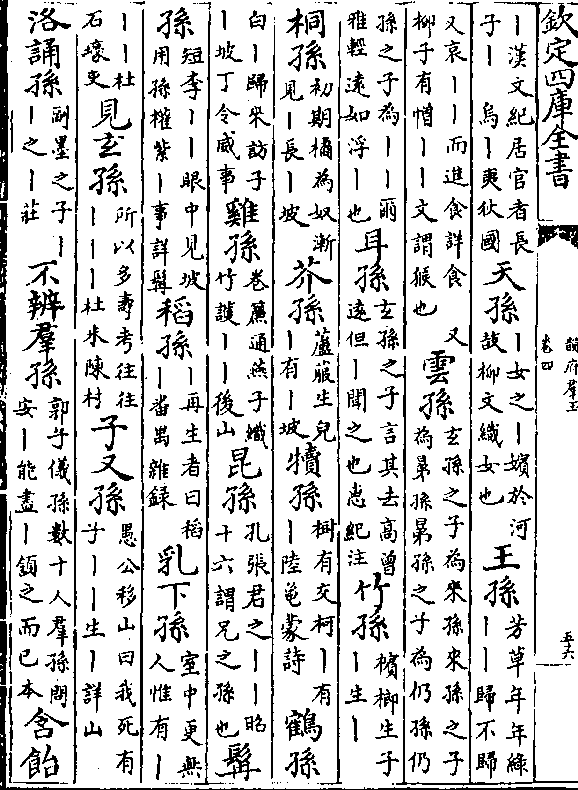 欽定四庫全書
韻府羣玉
卷四
五六
｜漢文紀居官者長子｜ 烏｜奭狄國 天孫 ｜女之｜嬪於河鼓柳文織女也 王孫 芳草年年綠｜｜歸不歸
又哀｜｜而進食詳食 柳子有憎｜｜文謂猴也 又 雲孫 玄孫之子為來孫來孫之子為晜孫晜孫之子為仍孫仍
孫之子為｜｜爾雅輕遠如浮｜也 耳孫 玄孫之子言其去高曾遠但｜聞之也惠紀注 竹孫 檳榔生子｜生｜
桐孫 初期橘為奴漸見｜長｜坡 芥孫 蘆菔生兒｜有｜坡 犢孫 桐有交柯｜有｜陸龜蒙詩 鶴孫
白｜歸來訪子｜坡丁令威事 雞孫 卷簾通燕子織竹護｜｜後山 昆孫 孔張君之｜｜昭十六謂兄之孫也 髯
孫 短李｜｜眼中見坡用孫權紫｜事詳髯 稻孫 ｜再生者曰稻｜畨禺雜録 乳下孫 室中更無人惟有｜
｜｜杜石壕吏 見玄孫 所以多壽考往往｜｜｜杜朱陳村 子又孫 愚公移山曰我死有子｜｜生｜詳山
洛誦孫 副墨之子｜｜之｜莊 不辨羣孫 郭子儀孫數十人羣孫問安｜能盡｜頷之而已本 含飴